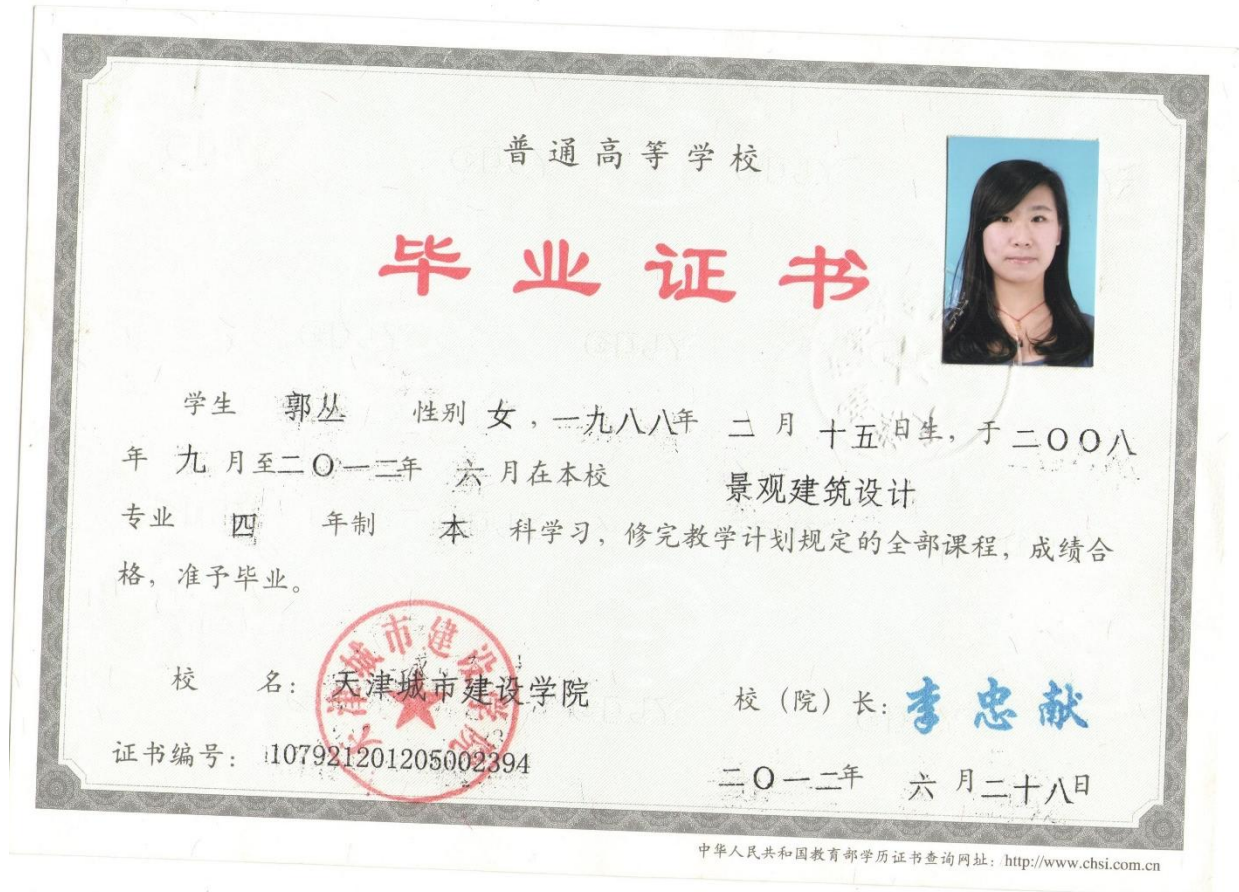 普通高等学校
毕业证书
学生 郭丛 性别 女，一九八八年 二 月 十五 日生，于 二〇〇八
年 九 月至二〇一二年 六 月在本校 景观建筑设计
专业 四 年制 本 科学习，修完教学计划规定的全部课程，成绩合
格，准予毕业。
天津城市建设学院
校 名：天津城市建设学院 校（院）长：李忠献
证书编号：107921201205002394 二〇一二年 六 月二十八日
中华人民共和国教育部学历证书查询网址：http://www.chsi.com.cn